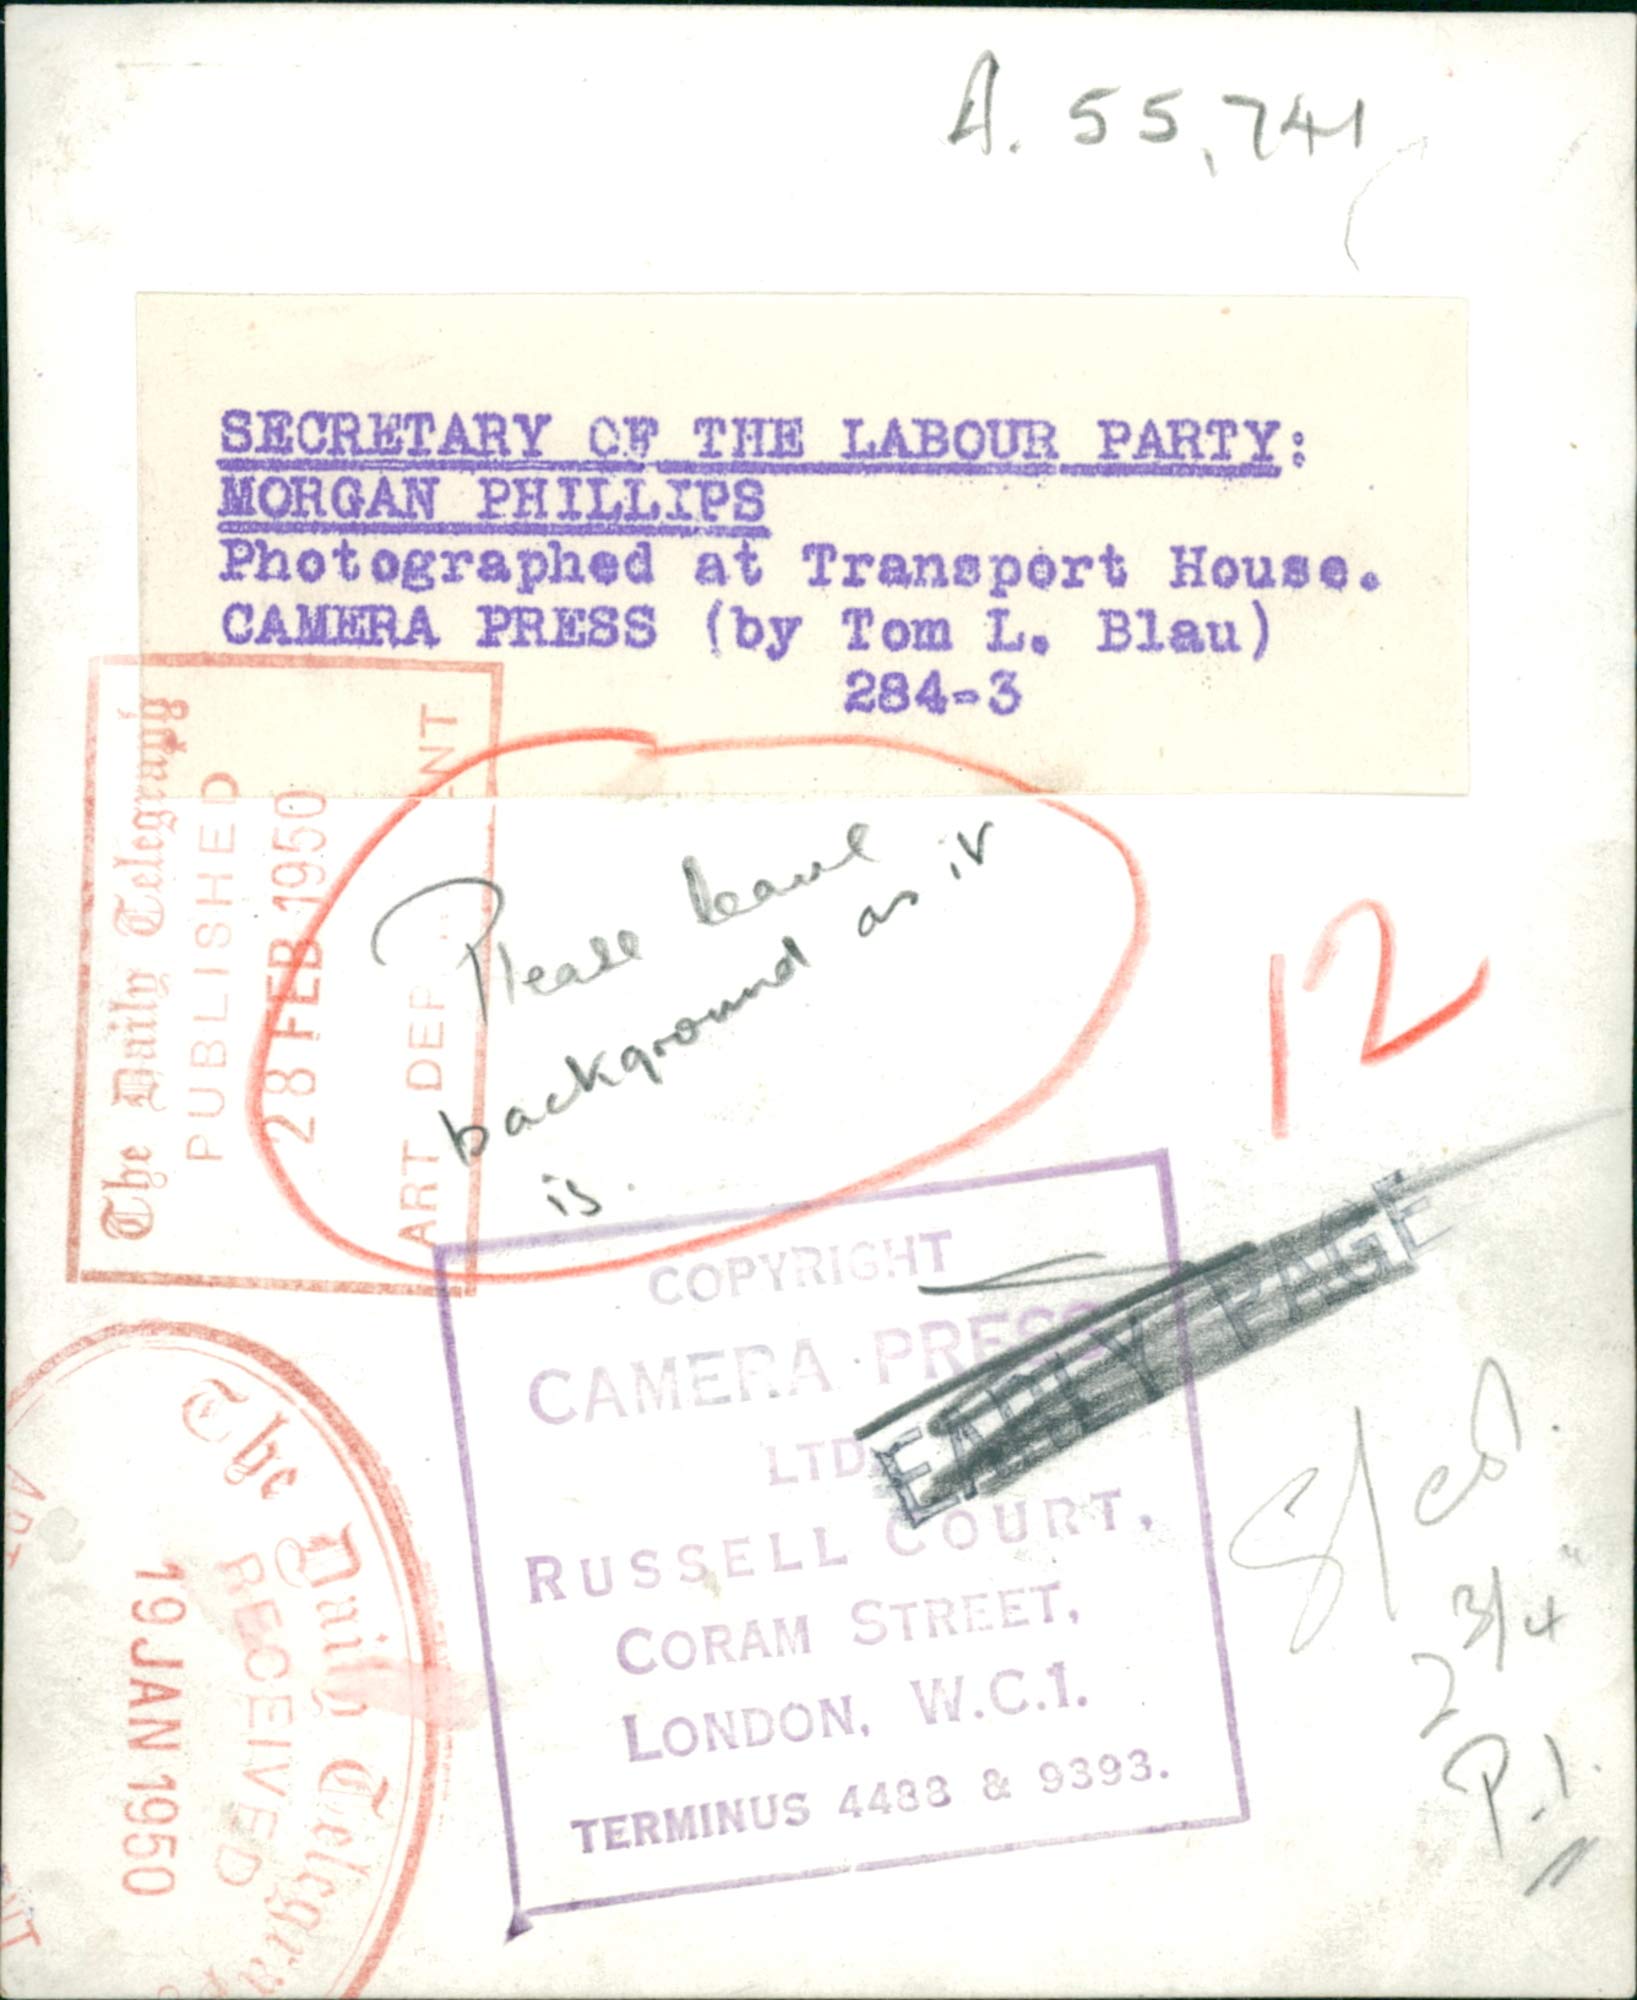 A. 55,741
SECRETARY OF THE LABOUR PARTY:
MORGAN PHILLIPS
Photographed at Transport House.
CAMERA PRESS (by Tom L. Blau)
284-3
The Daily Telegraph
PUBLISHED
28 FEB 1950
ART DEP NT
Please leave
background as it
is.
12
COPYRIGHT
CAMERA PRESS
LTD.
RUSSELL COURT,
CORAM STREET,
LONDON, W.C.1.
TERMINUS 4488 & 9393.
EARLY PAGE
S/col.
2 3/4"
P.1.
The Daily Telegra
RECEIVED
19 JAN 1950
ART
NT